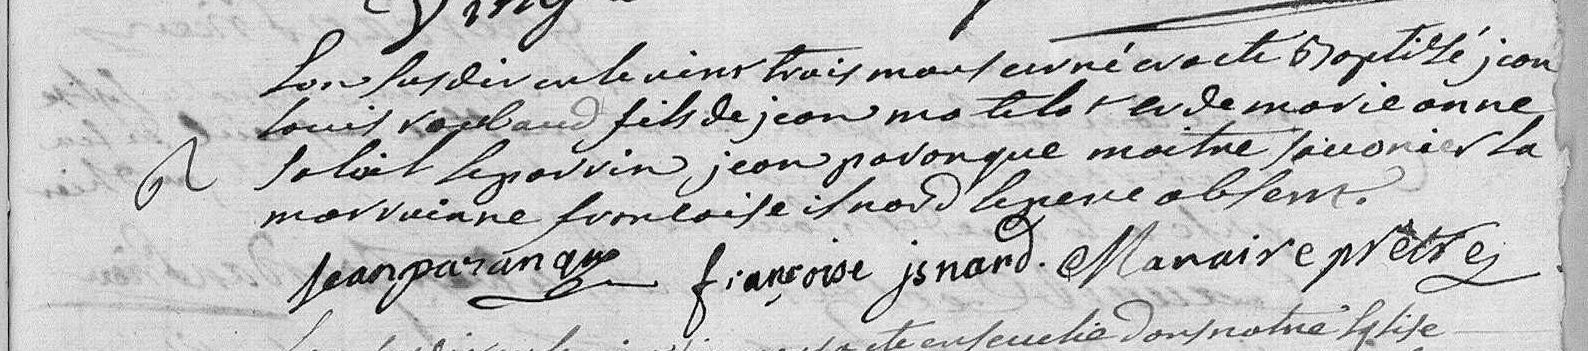 L'on susdit et le vint trois mars est né et a eté Baptisé jean
louis raybaud fils de jean matelot et de marie anne
le parrin jean paranque maitre savonier la
marraine françoise isnard le pere absent.
jean paranque françoise jsnard. Manaire prêtre
dans notre Eglise